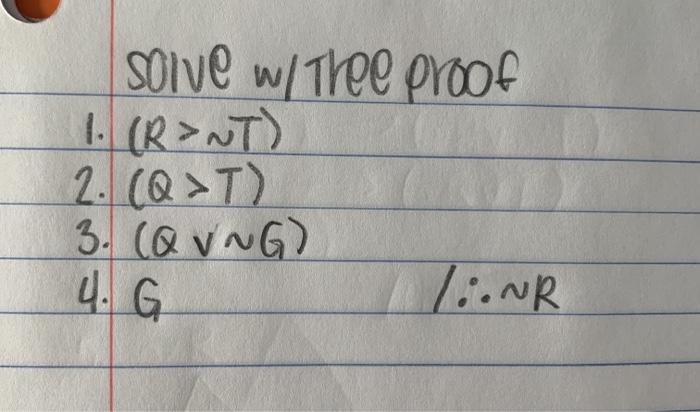 solve w/ Tree proof
1. (R > ~T)
2. (Q > T)
3. (Q v ~G)
4. G /∴ ~R